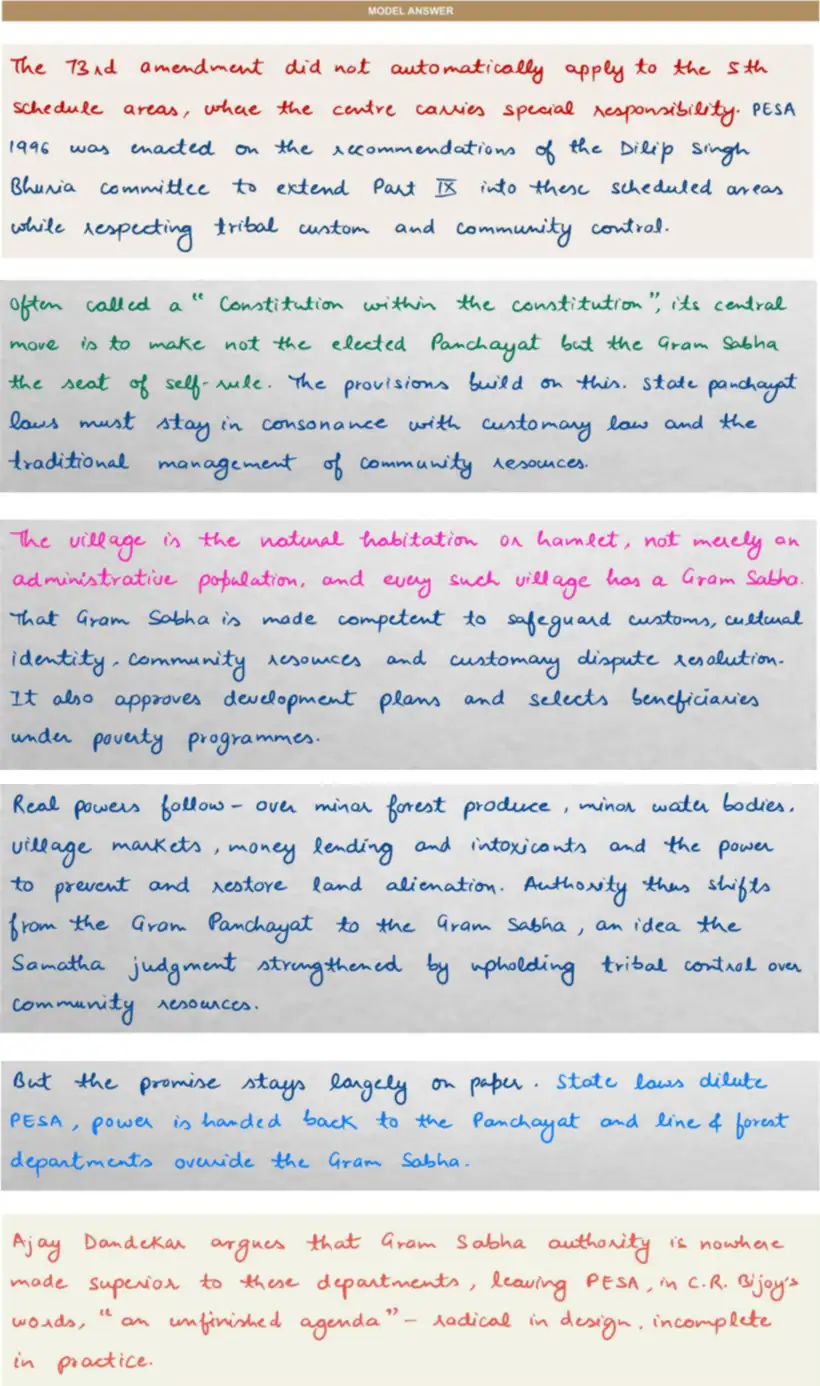 MODEL ANSWER
The 73rd amendment did not automatically apply to the 5th
schedule areas, where the centre carries special responsibility. PESA
1996 was enacted on the recommendations of the Dilip Singh
Bhuria committee to extend Part IX into these scheduled areas
while respecting tribal custom and community control.
Often called a "Constitution within the constitution", its central
move is to make not the elected Panchayat but the Gram Sabha
the seat of self-rule. The provisions build on this. State panchayat
laws must stay in consonance with customary law and the
traditional management of community resources.
The village is the natural habitation or hamlet, not merely an
administrative population, and every such village has a Gram Sabha.
That Gram Sabha is made competent to safeguard customs, cultural
identity, community resources and customary dispute resolution.
It also approves development plans and selects beneficiaries
under poverty programmes.
Real powers follow - over minor forest produce, minor water bodies,
village markets, money lending and intoxicants and the power
to prevent and restore land alienation. Authority thus shifts
from the Gram Panchayat to the Gram Sabha, an idea the
Samatha judgment strengthened by upholding tribal control over
community resources.
But the promise stays largely on paper. State laws dilute
PESA, power is handed back to the Panchayat and line & forest
departments override the Gram Sabha.
Ajay Dandekar argues that Gram Sabha authority is nowhere
made superior to these departments, leaving PESA, in C.R. Bijoy's
words, "an unfinished agenda" - radical in design, incomplete
in practice.